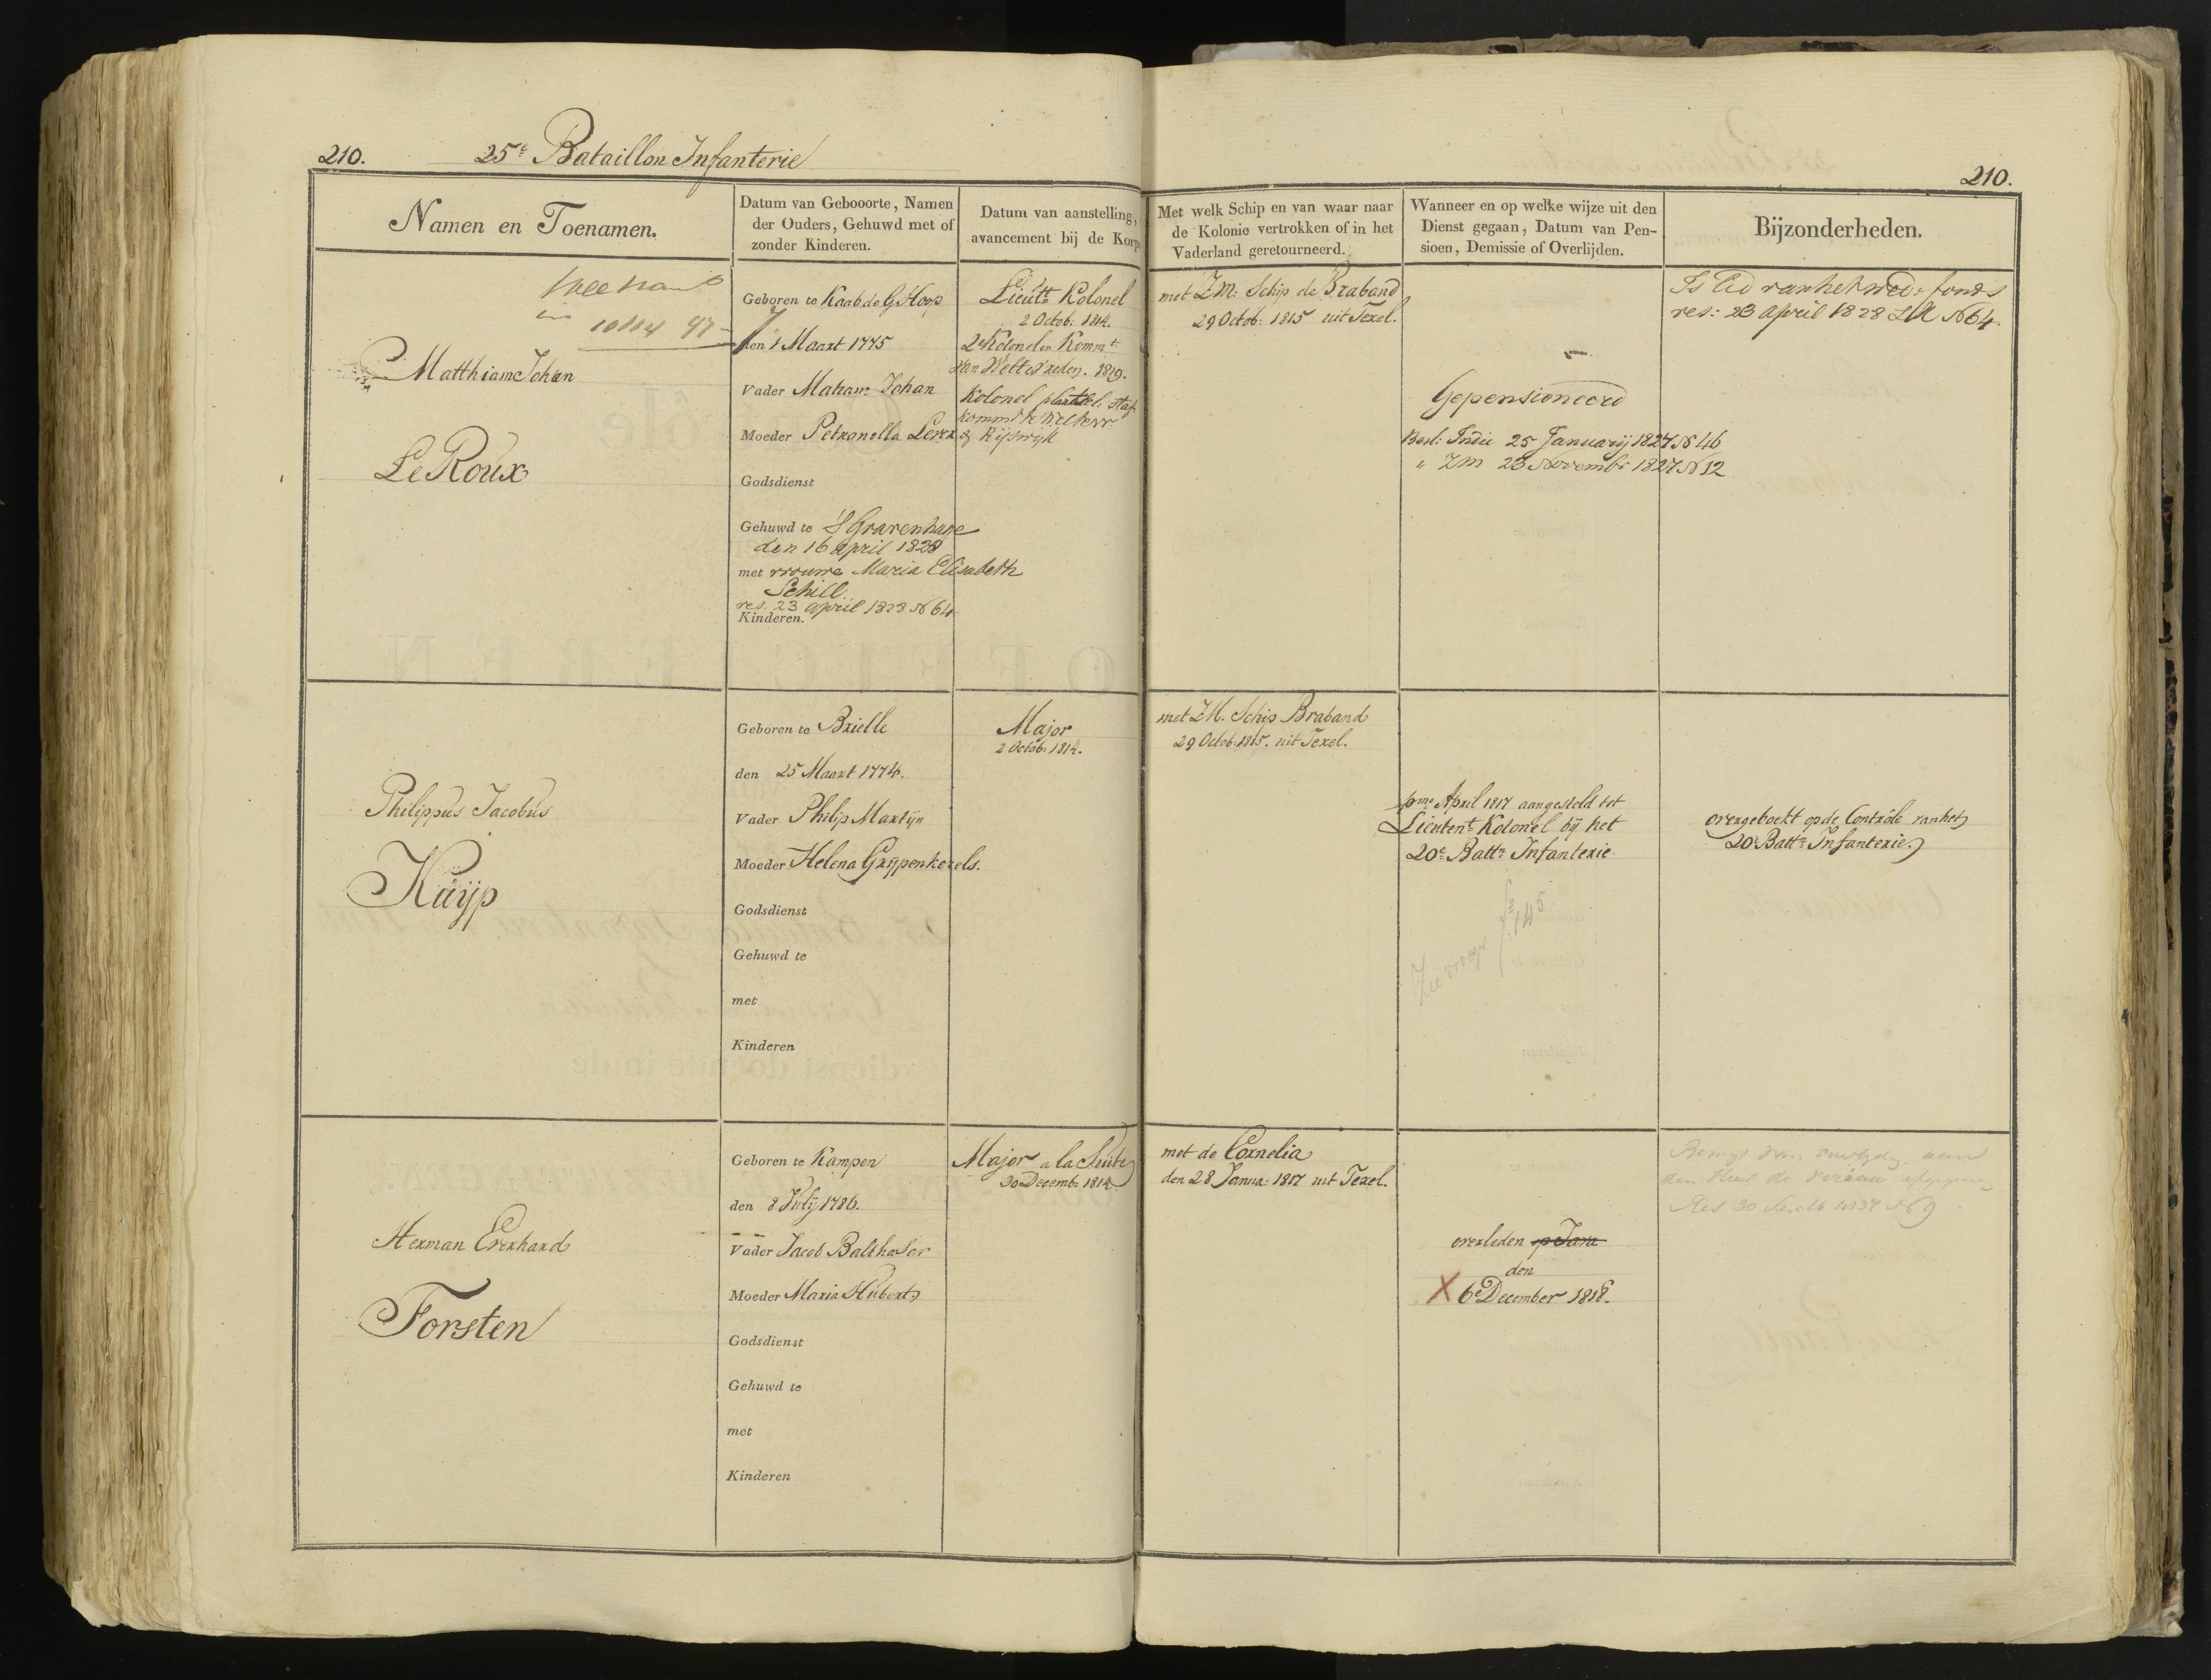 210.
25e Bataillon Infanterie
210.
Namen en Toenamen.
Datum van Gebooorte, Namen
der Ouders, Gehuwd met of
zonder Kinderen.
Datum van aanstelling,
avancement bij de Korps
Met welk Schip en van waar naar
de Kolonie vertrokken of in het
Vaderland geretourneerd.
Wanneer en op welke wijze uit den
Dienst gegaan, Datum van Pen-
sioen, Demissie of Overlijden.
Bijzonderheden.
Matthiam Johan
Le Roux
Geboren te Kaab de G Hoop
den 1 Maart 1775
Vader Johan
Moeder Petronella
Godsdienst
Gehuwd te S' Gravenhage
den 16 april 1828
met vrouwe Maria Elisabeth
Schill
res. 23 april 1828 N 64
Kinderen.
Lieutt Kolonel
2 Octob: 1814.
2e Kolonel en Kommt
van Weltevreden. 1819.
Kolonel plaatsel. staf
& Rijswijk
met ZM: Schip de Braband
29 Octob: 1815 uit Texel.
Gepensioneerd
Besl: Indie 25 Januarij 1827 N 46
" ZM 23 Novemb: 1827 N 12
Is lid van het wed: fonds
res: 23 april 1828 LA N 64.
Philippus Jacobus
Kuijp
Geboren te Brielle
den 25 Maart 1774.
Vader Philip Martijn
Moeder Helena Grijpenkerels.
Godsdienst
Gehuwd te
met
Kinderen
Major
2 Octob: 1814.
met ZM. Schip Braband
29 Octob: 1815. uit Texel.
pmo April 1817 aangesteld tot
Lieutent Kolonel bij het
20e Battn Infanterie
Zie vroeger fo 145
overgeboekt op de Controle van het
20e Battn Infanterie.
Herman Everhard
Forsten
Geboren te Kampen
den 8 Julij 1786.
Vader Jacob Balthasar
Moeder Maria Huberts
Godsdienst
Gehuwd te
met
Kinderen
Major a la Suite
30 Decemb: 1814.
met de Cornelia
den 28 Janua: 1817 uit Texel.
overleden op Java
den
X 6e December 1818.